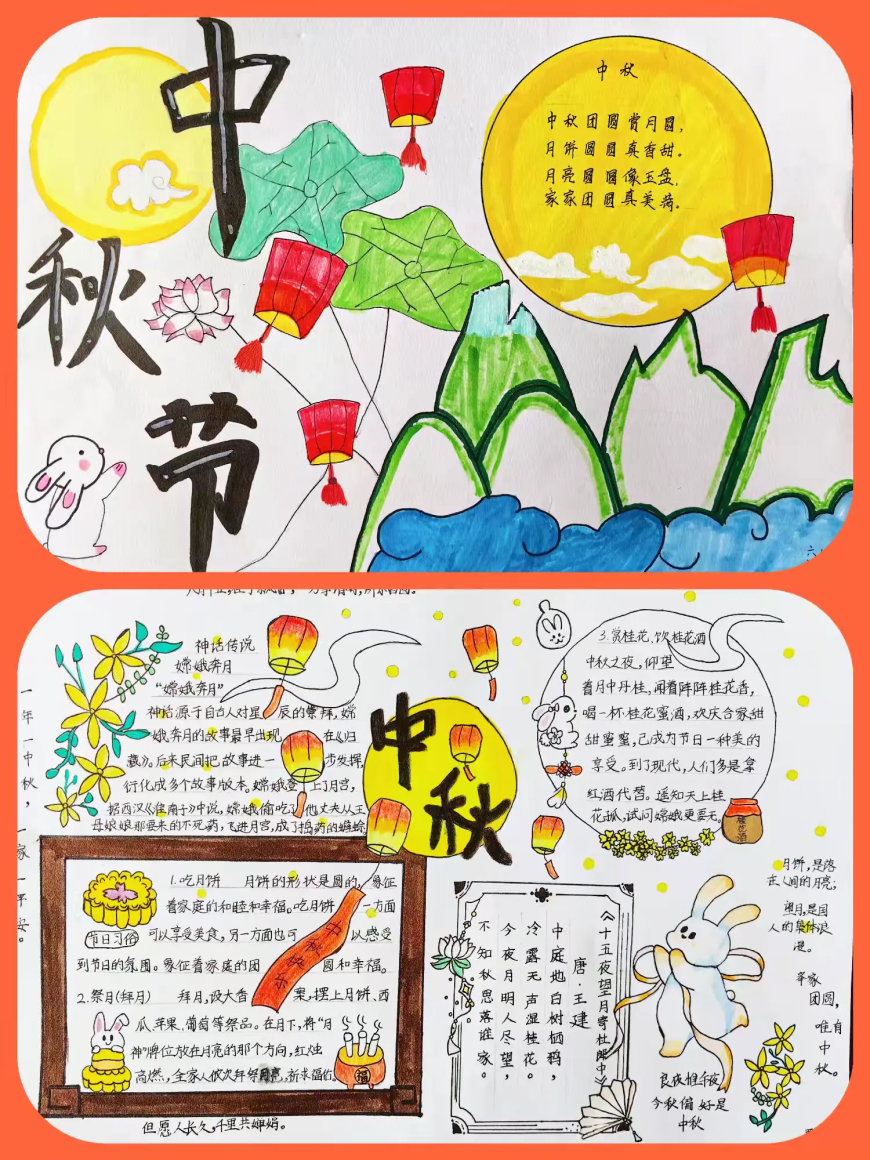 中
秋
节
中秋
中秋团圆赏月圆，
月饼圆圆真香甜。
月亮圆圆像玉盘，
家家团圆真美满。
神话传说
嫦娥奔月
“嫦娥奔月”
神话源于自古人对星辰的崇拜,嫦
娥奔月的故事最早出现在《归
藏》。后来民间把故事进一步发挥,
衍化成多个故事版本。嫦娥登上了月宫,
据西汉《淮南子》中说,嫦娥偷吃了他丈夫从王
母娘娘那要来的不死药,飞进月宫,成了捣药的蟾蜍
一年一中秋，一家一平安。
中
秋
3.赏桂花,饮桂花酒
中秋之夜,仰望
着月中丹桂,闻着阵阵桂花香,
喝一杯桂花蜜酒,欢庆合家甜
甜蜜蜜,已成为节日一种美的
享受。到了现代,人们多是拿
红酒代替。遥知天上桂
花孤,试问嫦娥更要无。
桂花酒
1.吃月饼 月饼的形状是圆的,象征
着家庭的和睦和幸福。吃月饼一方面
节日习俗
可以享受美食,另一方面也可以感受
到节日的氛围。象征着家庭的团圆和幸福。
中秋快乐
2.祭月(拜月) 拜月,设大香案,摆上月饼、西
瓜、苹果、葡萄等祭品。在月下,将“月
神”牌位放在月亮的那个方向,红烛
高燃,全家人依次拜祭月亮,祈求福佑。
福
但愿人长久,千里共婵娟。
《十五夜望月寄杜郎中》
唐·王建
中庭地白树栖鸦，
冷露无声湿桂花。
今夜月明人尽望，
不知秋思落谁家。
月饼,是落
在人间的月亮;
望月,是国
人的集体浪
漫。
举家
团圆,
唯有
中
秋。
良夜惟午夜,
今秋偏好是
中秋